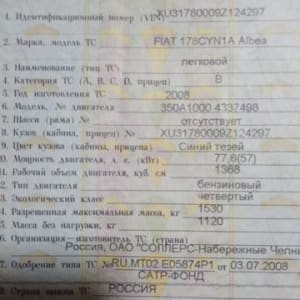 1. Идентификационный номер (VIN) XU31780009Z124297
2. Марка, модель ТС FIAT 178CYN1A Albea
3. Наименование (тип ТС) легковой
4. Категория ТС (A, B, C, D, прицеп) B
5. Год изготовления ТС 2008
6. Модель, № двигателя 350A1000 4337498
7. Шасси (рама) № отсутствует
8. Кузов (кабина, прицеп) № XU31780009Z124297
9. Цвет кузова (кабины, прицепа) Синий тезей
0. Мощность двигателя, л. с. (кВт) 77,6(57)
1. Рабочий объем двигателя, куб. см 1368
2. Тип двигателя бензиновый
3. Экологический класс четвертый
4. Разрешенная максимальная масса, кг 1530
5. Масса без нагрузки, кг 1120
6. Организация—изготовитель ТС (страна)
Россия, ОАО "СОЛЛЕРС-Набережные Челны
7. Одобрение типа ТС № RU.MT02.E05874P1 от 03.07.2008
САТР-ФОНД
8. Страна вывоза ТС РОССИЯ